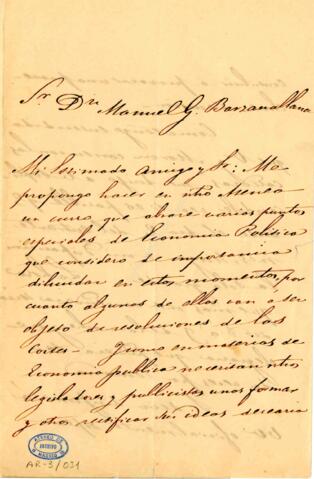 Sr. Dn. Manuel G. Barzanallana
Mi estimado amigo y Sr: Me
propongo hacer en ntro Ateneo
un curso, que abrace varios puntos
especiales de Economia Politica
que considero de importancia
dilucidar en estos momentos, por
cuanto algunos de ellos van a ser
objeto de resoluciones de las
Cortes. en materias de
Economia publica necesitan ntros
legisladores y publicistas unos formar
y otros rectificar sus ideas
ATENEO DE MADRID
ARCHIVO
AR-3/031